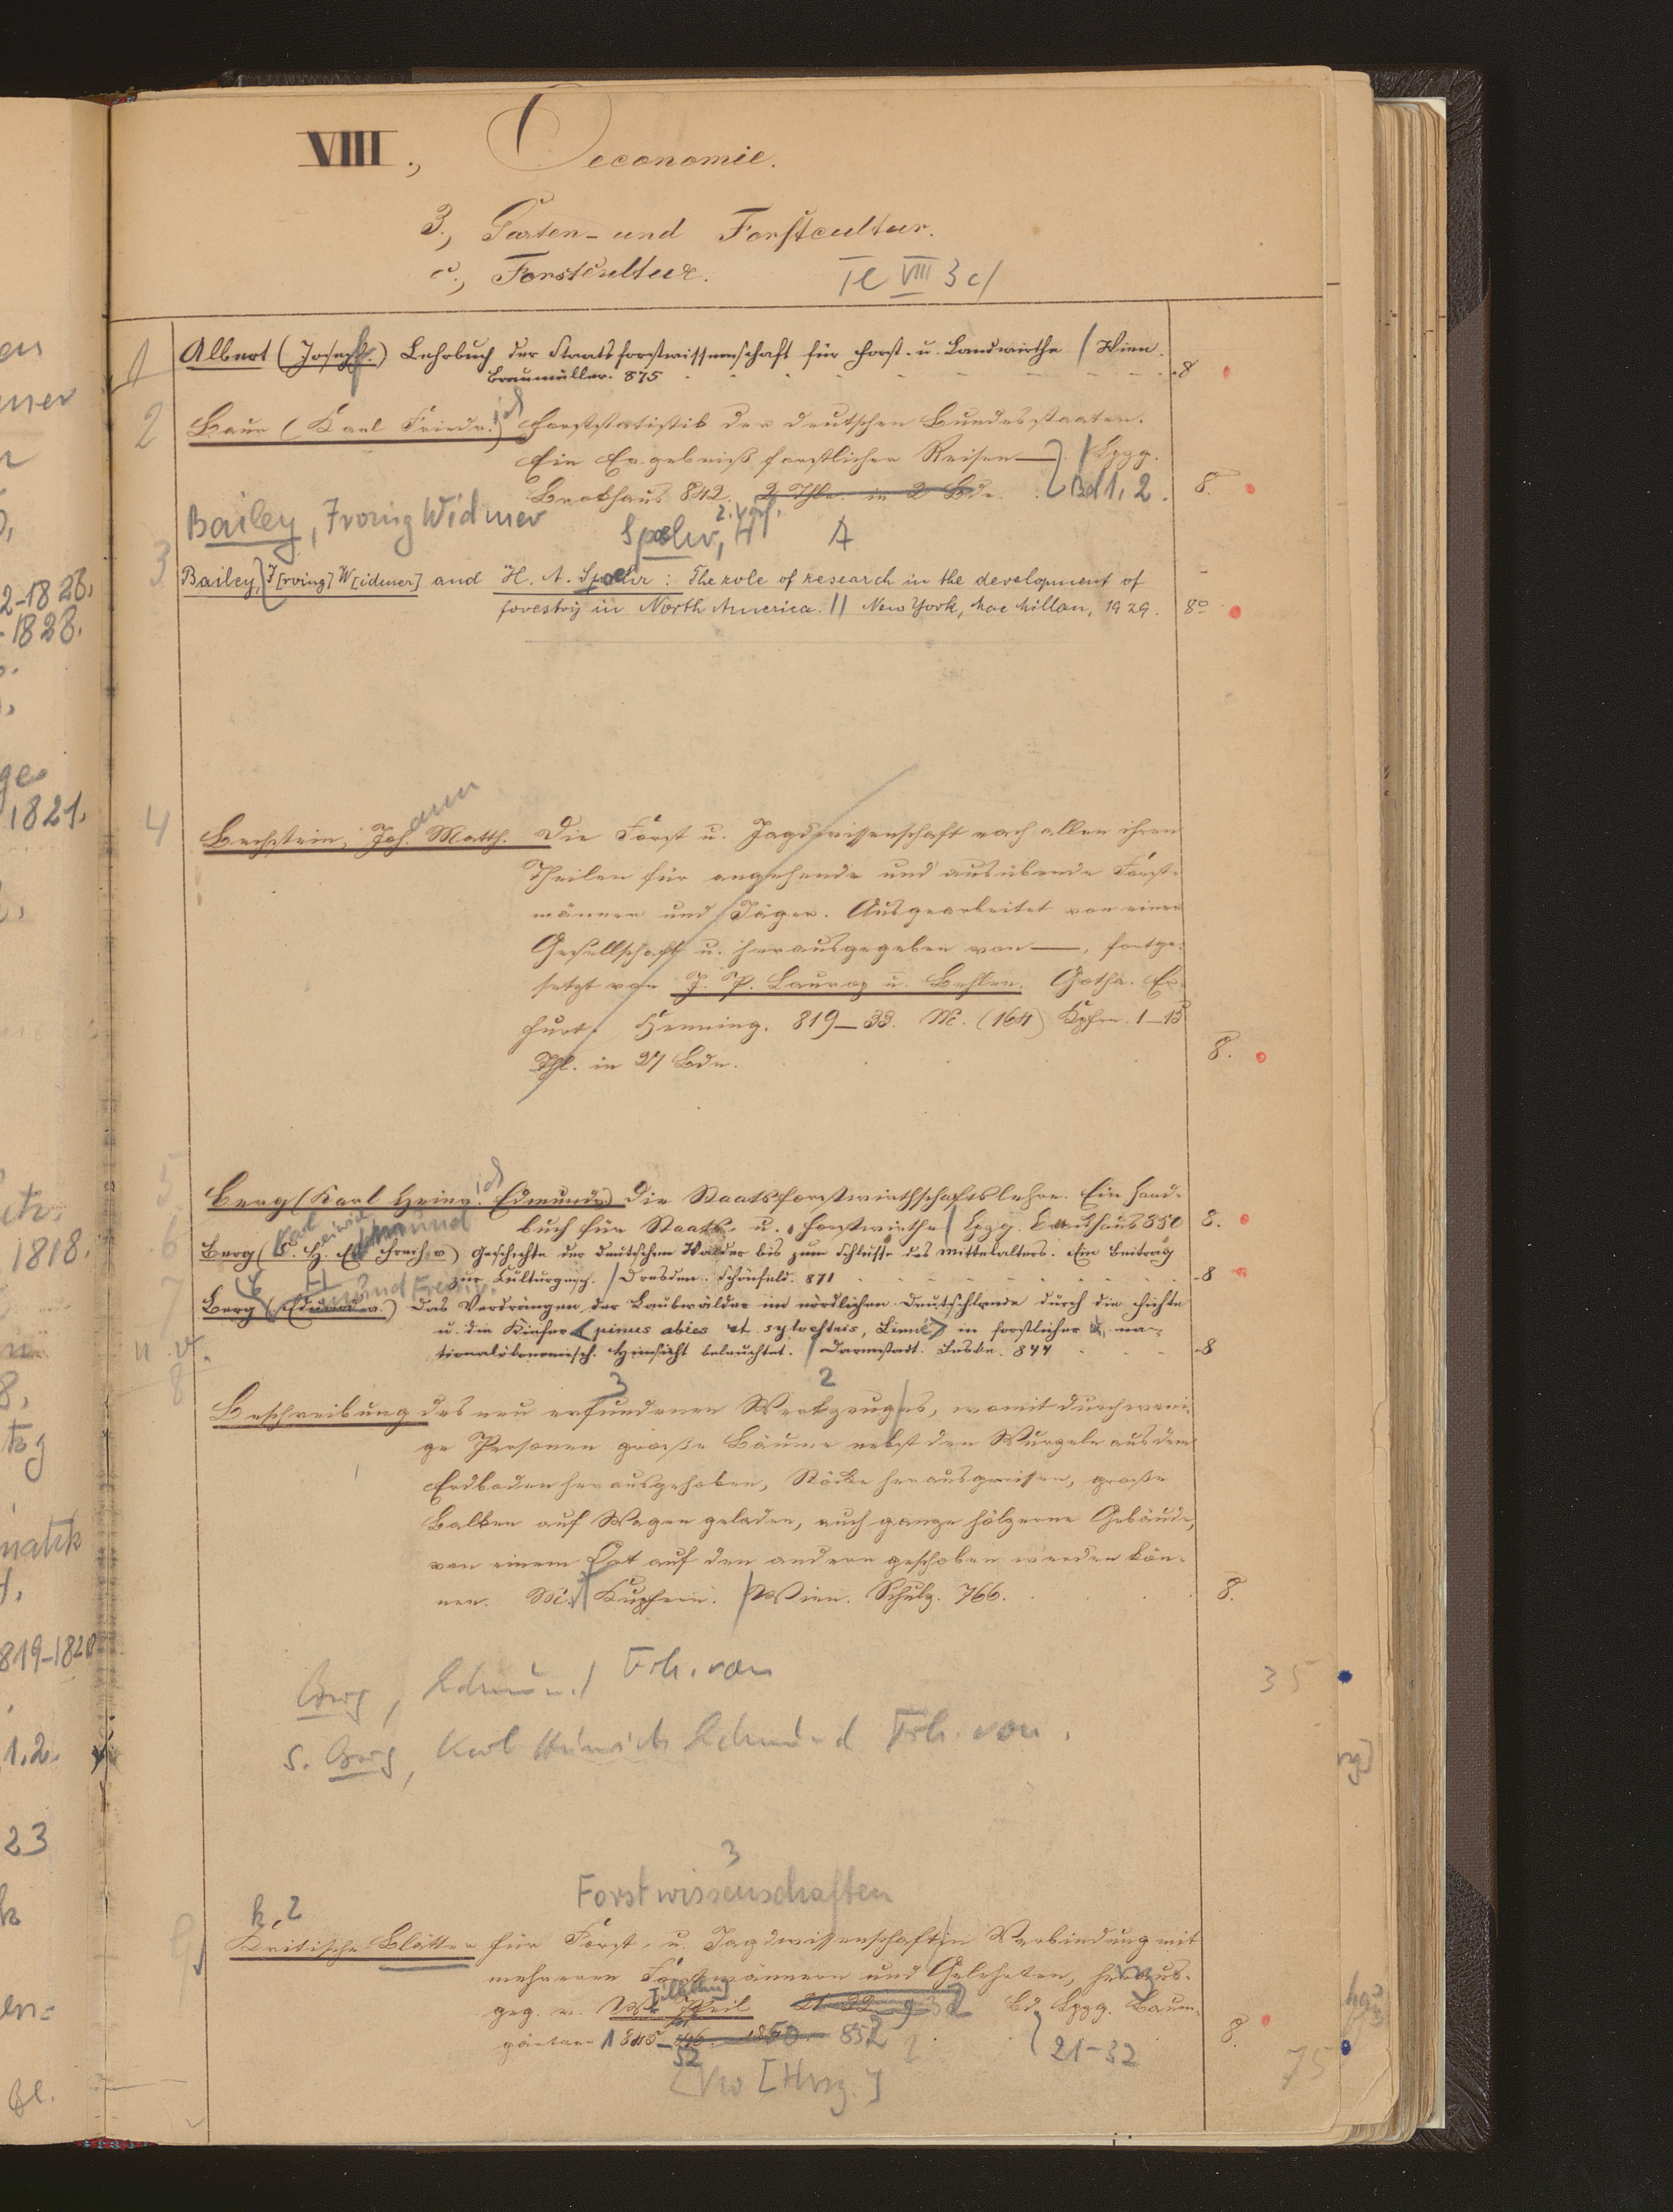 VIII., Oeconomie.
3., Garten- und Forstcultur.
c., Forstcultur. Te VIII 3 c/
1 Albert (Joseph.) Lehrbuch der Staatsforstwissenschaft für Forst- u. Landwirthe / Wien.
Braumüller. 875 8
2 Baur (Karl Friedr.) Forststatistik der deutschen Bundesstaaten.
Ein Ergebniß forstlicher Reisen —. / Lpzg.
Brockhaus 842. 2 Thle. in 2 Bde. Bd 1, 2. 8.
Bailey, Irving Widmer Spoehr, H A
3 Bailey, I[rving] W[idmer] and H. A. Spoehr: The role of research in the development of
forestry in North America. // New York, Mac Millan, 1929. 8°
4 Bechstein, Joh. Matth. Die Forst u. Jagdwissenschaft nach allen ihren
Theilen für angehende und ausübende Forst-
männer und Jäger. Ausgearbeitet von einer
Gesellschaft u. herausgegeben von —, fortge-
setzt von J. P. Laurop u. Behlen. Gotha. Er-
furt. Henning. 819–33. M. (164) Kpfrn. 1–13
Thl. in 27 Bdn. 8.
5 Berg (Karl Heinr. Edmund v.) Die Staatsforstwirthschaftslehre. Ein Hand-
buch für Staats- u. Forstwirthe / Lpzg. Brockhaus 850 8.
6 Berg (C. H. Ed. Freih. v.) Geschichte der deutschen Wälder bis zum Schlusse des Mittelalters. Ein Beitrag
zur Culturgesch. / Dresden. Schönfeld. 871 8
7 Berg (Edmund v.) Das Verdrängen der Laubwälder im nördlichen Deutschlande durch die Fichte
u. die Kiefer <pinus abies et sylvestris, Linné> in forstlicher u. na-
tionalökonomisch. Hinsicht beleuchtet. / Darmstadt. Leske. 844 8
8 Beschreibung des neu erfundenen Werkzeuges, womit durch weni-
ge Personen große Bäume nebst den Wurzeln aus dem
Erdboden herausgehoben, Stöcke herausgerissen, große
Balken auf Wagen geladen, auch ganze hölzerne Gebäude,
von einem Ort auf den andern geschoben werden kön-
nen. M. Kupfern. / Wien. Schulz. 766. 8.
Berg, Edmund Frh. von
s. Berg, Karl Heinrich Edmund Frh. von.
35
3
Forstwissenschaften
9 Kritische Blätter für Forst- u. Jagdwissenschaft in Verbindung mit
mehreren Forstmännern und Gelehrten, heraus-
geg. v. W. Pfeil Bd. Lpzg. Baum-
gärtner 1845– 852 21–32 8.
75
[Hrsg.]